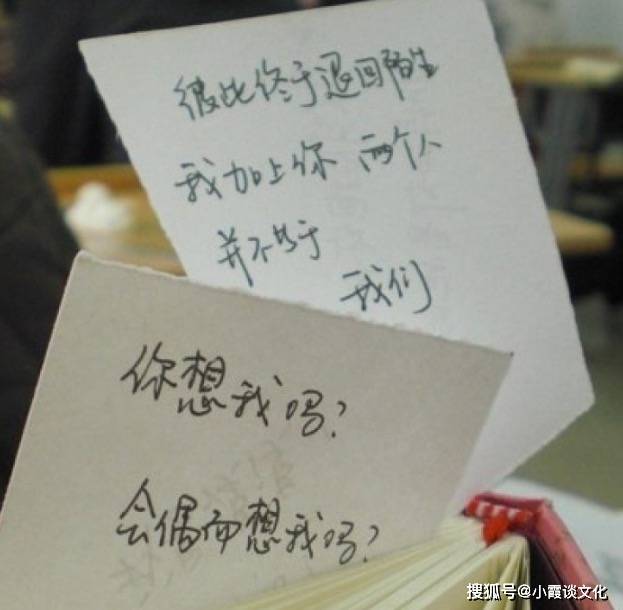 彼此终于退回陌生
我加上你 两个人
并不等于
我们
你想我吗?
会偶而想我吗?
搜狐号@小霞谈文化